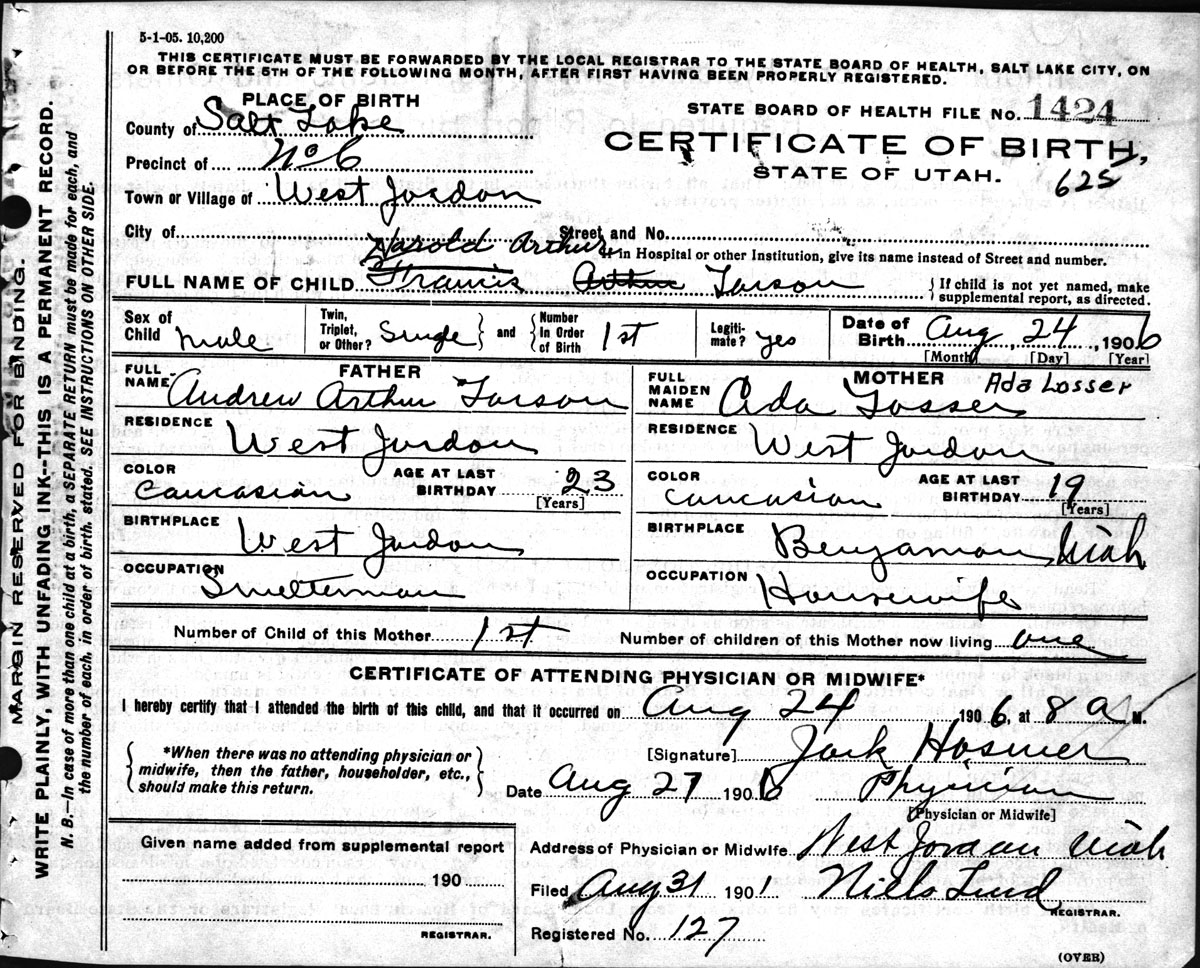 5-1-05. 10,200
THIS CERTIFICATE MUST BE FORWARDED BY THE LOCAL REGISTRAR TO THE STATE BOARD OF HEALTH, SALT LAKE CITY, ON
OR BEFORE THE 5TH OF THE FOLLOWING MONTH, AFTER FIRST HAVING BEEN PROPERLY REGISTERED.
MARGIN RESERVED FOR BINDING.
WRITE PLAINLY, WITH UNFADING INK--THIS IS A PERMANENT RECORD.
N. B.--In case of more than one child at a birth, a SEPARATE RETURN must be made for each, and
the number of each, in order of birth, stated. SEE INSTRUCTIONS ON OTHER SIDE.
PLACE OF BIRTH
County of Salt Lake
Precinct of No 6
Town or Village of West Jordon
City of
Street and No.
If in Hospital or other Institution, give its name instead of Street and number.
STATE BOARD OF HEALTH FILE No. 1424
CERTIFICATE OF BIRTH,
STATE OF UTAH.
625
Harold Arthur
FULL NAME OF CHILD Francis Arthur Larson
If child is not yet named, make
supplemental report, as directed.
Sex of Child male
Twin, Triplet, or Other? Single
and
Number In Order of Birth 1st
Legitimate? yes
Date of Birth Aug, 24, 1906
[Month] [Day] [Year]
FATHER
FULL NAME Andrew Arthur Larson
RESIDENCE West Jordon
COLOR caucasian
AGE AT LAST BIRTHDAY 23
[Years]
BIRTHPLACE West Jordon
OCCUPATION Smelterman
MOTHER
Ada Losser
FULL MAIDEN NAME Ada Losser
RESIDENCE West Jordon
COLOR caucasian
AGE AT LAST BIRTHDAY 19
[Years]
BIRTHPLACE Benjamon Utah
OCCUPATION Housewife
Number of Child of this Mother 1st
Number of children of this Mother now living one
CERTIFICATE OF ATTENDING PHYSICIAN OR MIDWIFE*
I hereby certify that I attended the birth of this child, and that it occurred on Aug 24 1906, at 8 a M.
*When there was no attending physician or
midwife, then the father, householder, etc.,
should make this return.
[Signature] Jack Hosmer
Date Aug 27 1906 Physician
[Physician or Midwife]
Given name added from supplemental report
190
REGISTRAR.
Address of Physician or Midwife West Jordan Utah
Filed Aug 31 1901 Niels Lind
REGISTRAR.
Registered No. 127
(OVER)